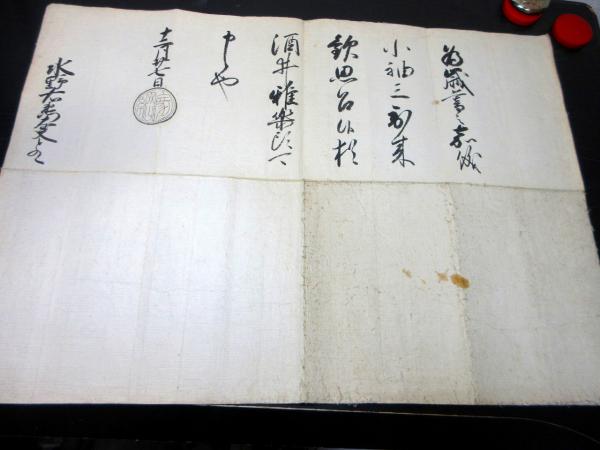 為歳暮之嘉儀
小袖三到来
歓思召候猶
酒井雅楽頭可
申候也
十二月廿七日
水野右衛門大夫とのへ